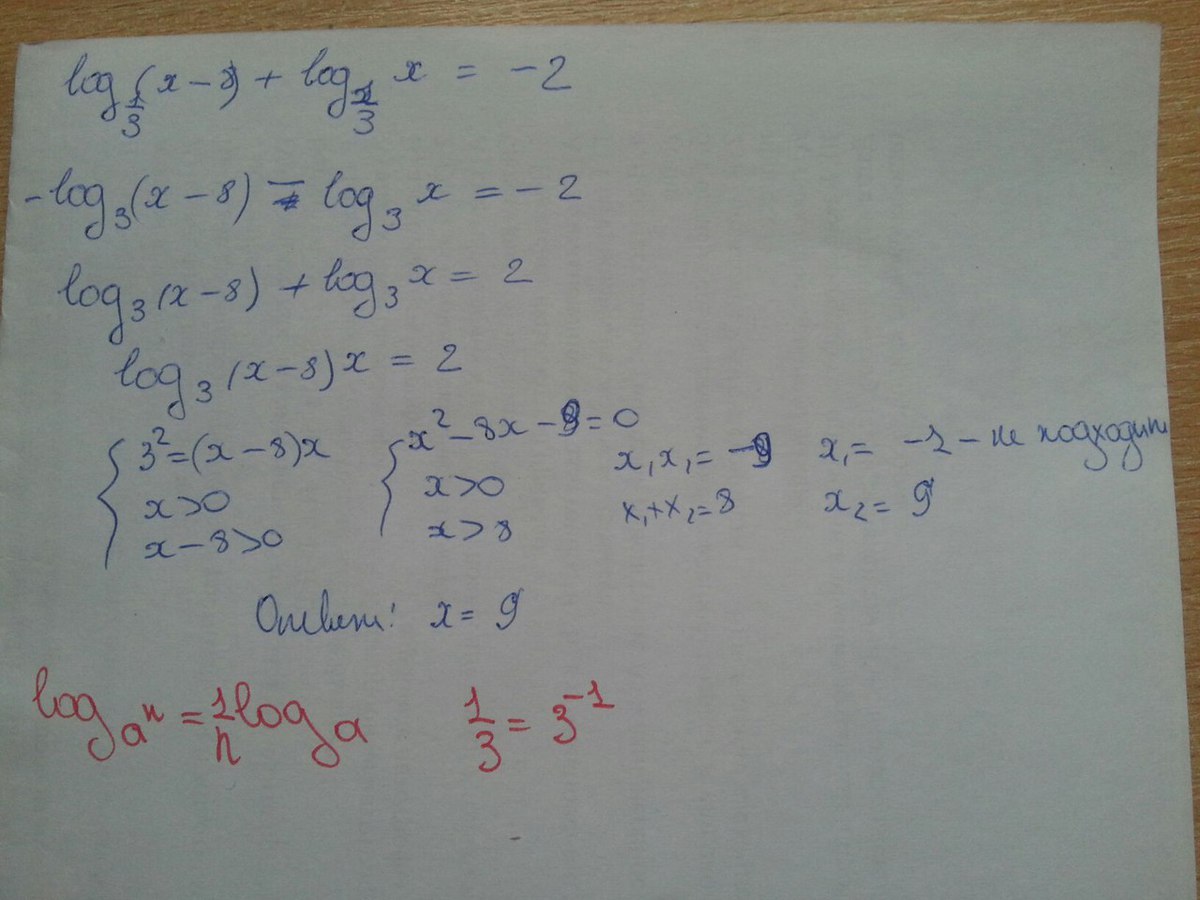 log_{1/3}(x-8) + log_{1/3} x = -2
-log_3(x-8) - log_3 x = -2
log_3(x-8) + log_3 x = 2
log_3(x-8)x = 2
{ 3^2=(x-8)x
x>0
x-8>0
{ x^2-8x-9=0
x>0
x>8
x_1x_1=-9
x_1+x_2=8
x_1= -1 - не подходит
x_2= 9
Ответ: x= 9
log_{a^n} = 1/n log_a
1/3 = 3^{-1}